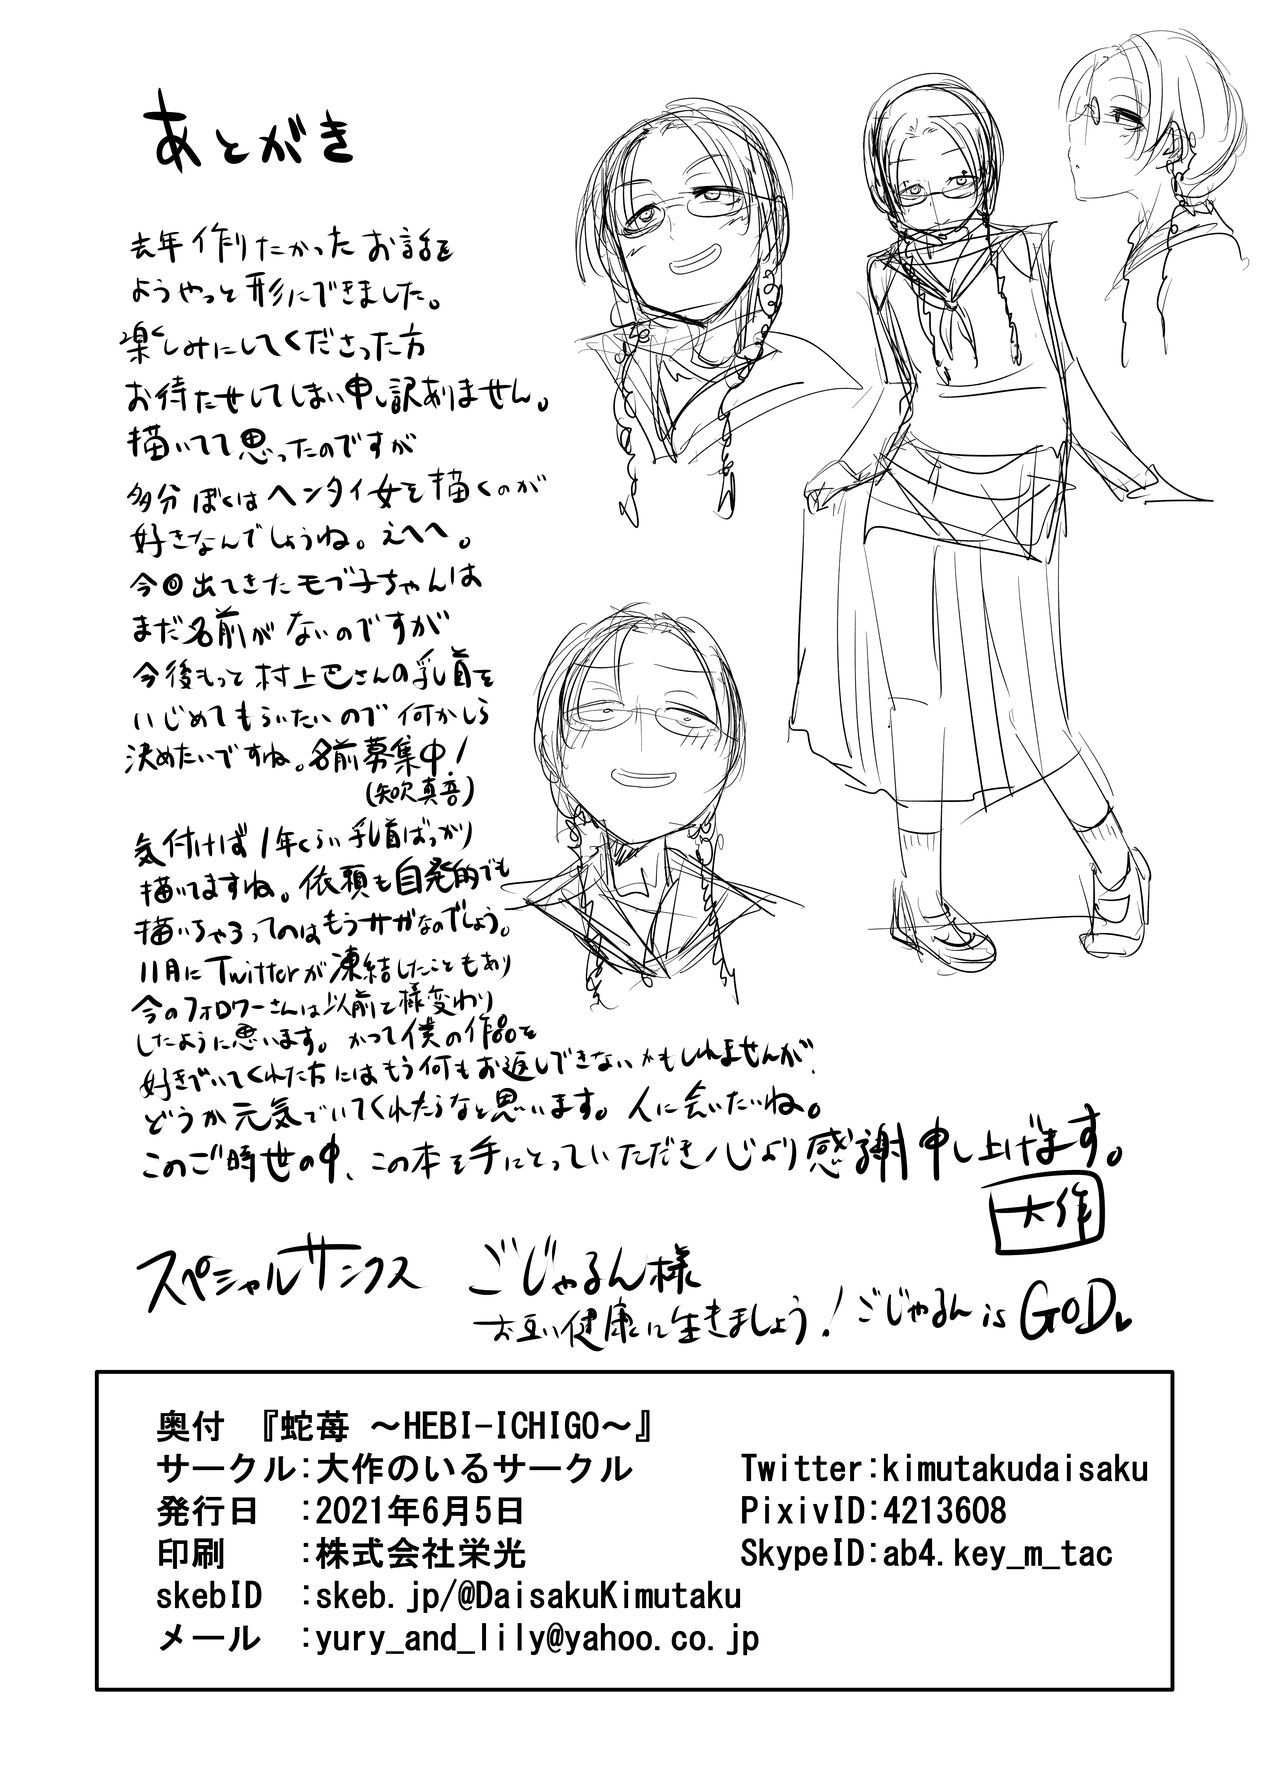 あとがき
去年作りたかったお話を
ようやっと形にできました。
楽しみにしてくださった方
お待たせしてしまい申し訳ありません。
描いてて思ったのですが
多分ぼくはヘンタイ女を描くのが
好きなんでしょうね。えへへ。
今回出てきたモブ子ちゃんは
まだ名前がないのですが
今後もって村上巴さんの乳首を
いじめてもらいたいので何かしら
決めたいですね。名前募集中!
(知吹真音)
気付けば1年くらい乳首ばっかり
描いてますね。依頼も自発的でも
描いちゃうってのはもうサガなのでしょう。
11月にTwitterが凍結したこともあり
今のフォロワーさんは以前と様変わり
したように思います。かつて僕の作品を
好きでいてくれた方にはもう何もお返しできないかもしれませんが
どうか元気でいてくれたらなと思います。人に会いたいね。
このご時世の中、この本を手にとっていただき心より感謝申し上げます。
大作
スペシャルサンクス ごじゃるん様
お互い健康に生きましょう!ごじゃるん is GOD♥
奥付 『蛇苺 ～HEBI-ICHIGO～』
サークル:大作のいるサークル Twitter:kimutakudaisaku
発行日 :2021年6月5日 PixivID:4213608
印刷 :株式会社栄光 SkypeID:ab4.key_m_tac
skebID :skeb.jp/@DaisakuKimutaku
メール :yury_and_lily@yahoo.co.jp